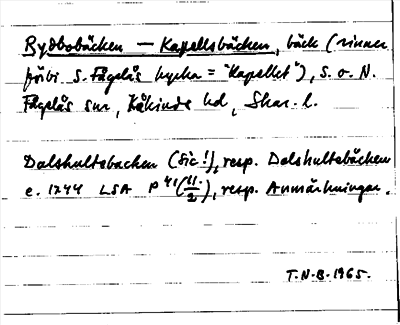 Rydbobäcken — Kapellsbäcken, bäck (rinner
förbi S. Fågelås kyrka = "Kapellet"), S. o. N.
Fågelås snr, Kåkinds hd, Skar. l.
Dalshultsbacken (sic!), resp. Dalshultsbäcken
e. 1744 LSA P 41 (11/2), resp. Anmärkningar.
T.N.B. 1965.